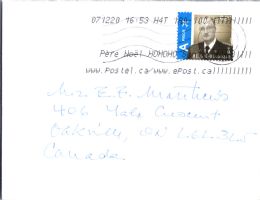 071220 16:53 H4T 100
Père Noël HOHOHO
www.Postel.ca/www.ePost.ca
Mrs. E.E.
406 Yale Crescent
Oakville, ON L6L 3L5
Canada.